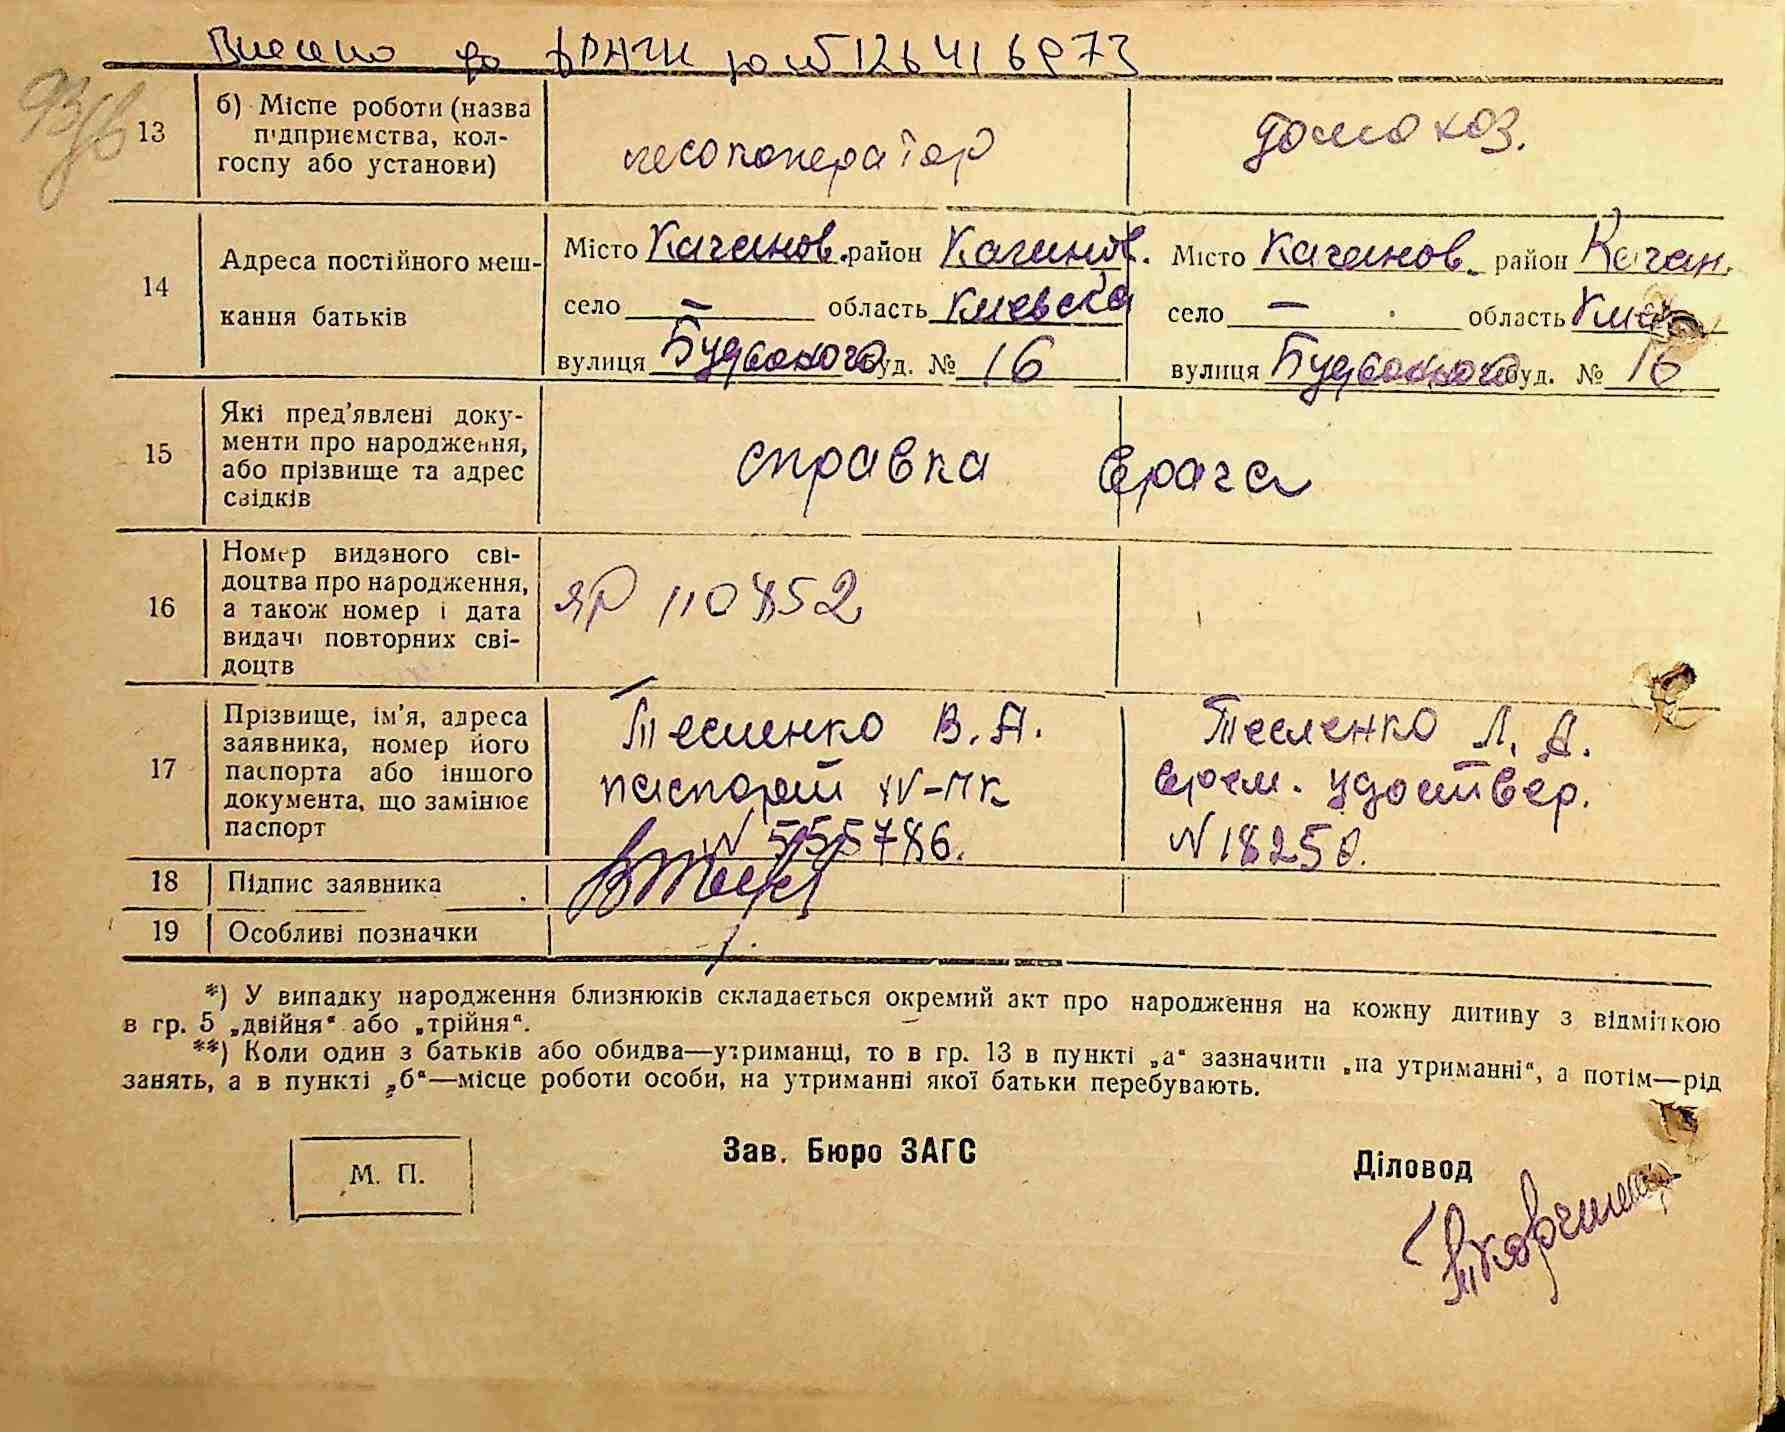 Внесено до ДРАЦС за № 126416973
93/6
13
б) Місце роботи (назва підприємства, колгоспу або установи)
лесокоператор
домохоз.
14
Адреса постійного мешкання батьків
Місто Каганов. район Каганов.
село — область Киевска
вулиця Будьоного буд. № 16
Місто Каганов. район Каган.
село — область Кие
вулиця Будьоного буд. № 16
15
Які пред'явлені документи про народження, або прізвище та адрес свідків
справка врача
16
Номер виданого свідоцтва про народження, а також номер і дата видачі повторних свідоцтв
ЯР 110852
17
Прізвище, ім'я, адреса заявника, номер його паспорта або іншого документа, що замінює паспорт
Тесленко В. А.
паспорт IV-ПК
N 555786.
Тесленко Л. А.
врем. удоствер.
N 18250.
18
Підпис заявника
19
Особливі позначки
*) У випадку народження близнюків складається окремий акт про народження на кожну дитину з відміткою
в гр. 5 „двійня“ або „трійня“.
**) Коли один з батьків або обидва—утриманці, то в гр. 13 в пункті „а“ зазначити „на утриманні“, а потім—рід
занять, а в пункті „б“—місце роботи особи, на утриманні якої батьки перебувають.
М. П.
Зав. Бюро ЗАГС
Діловод